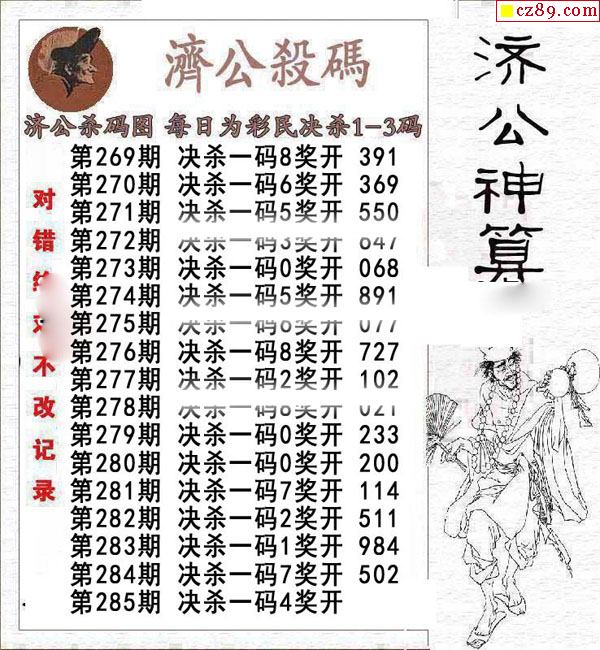 cz89.com
濟公殺碼
济公神算
济公杀码图 每日为彩民决杀1-3码
第269期 决杀一码8奖开 391
第270期 决杀一码6奖开 369
第271期 决杀一码5奖开 550
第272期 决杀一码3奖开 647
第273期 决杀一码0奖开 068
第274期 决杀一码5奖开 891
第275期 决杀一码6奖开 077
第276期 决杀一码8奖开 727
第277期 决杀一码2奖开 102
第278期 决杀一码8奖开 021
第279期 决杀一码0奖开 233
第280期 决杀一码0奖开 200
第281期 决杀一码7奖开 114
第282期 决杀一码2奖开 511
第283期 决杀一码1奖开 984
第284期 决杀一码7奖开 502
第285期 决杀一码4奖开
对错不改记录